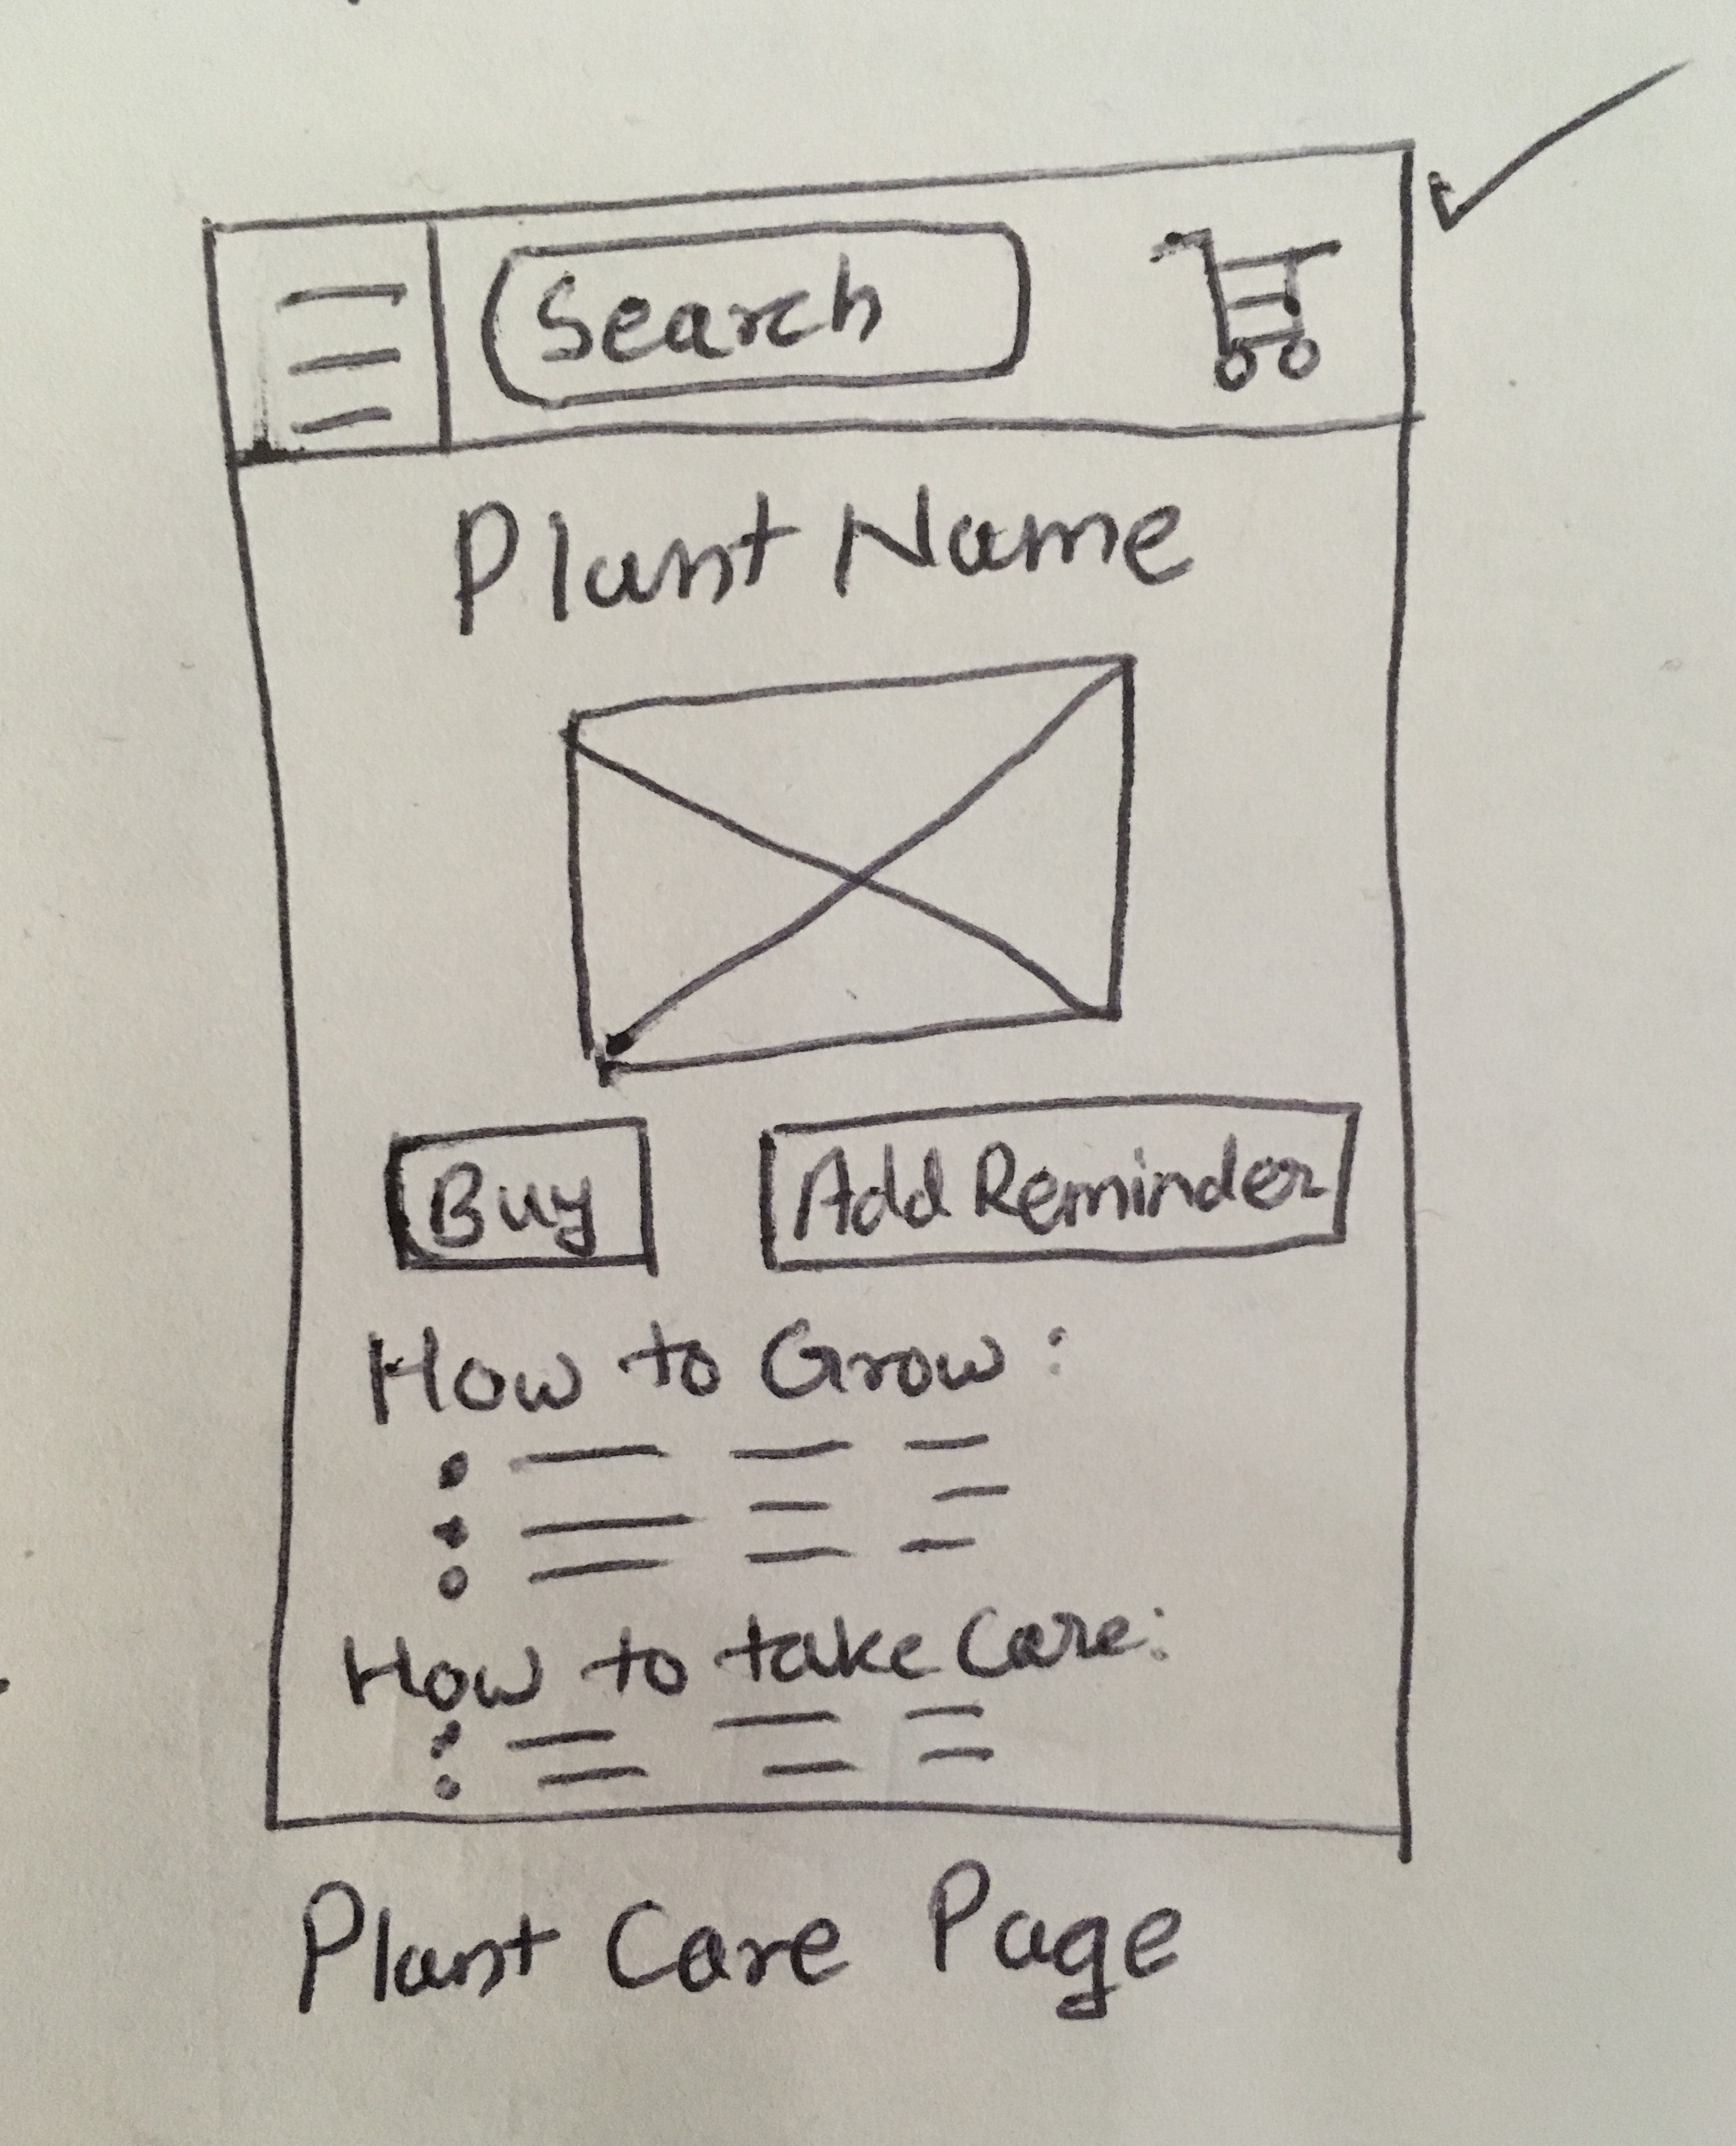 Search
Plant Name
Buy
Add Reminder
How to Grow:
How to take Care:
Plant Care Page